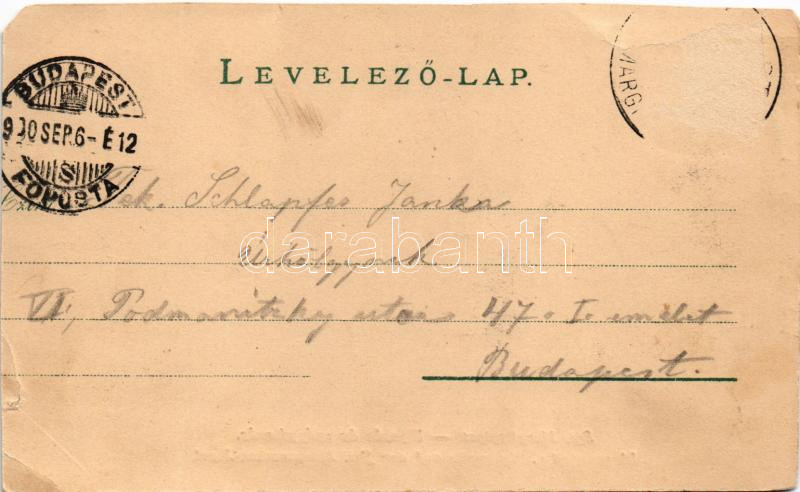 LEVELEZŐ-LAP.
BUDAPEST
900 SEP. 6 - É 12
S
FŐPOSTA
MARG
Tek. Schlapfer Janka
Úrhölgynek
VI, Podmaniczky utca 47. I. emelet
Budapest.
darabanth